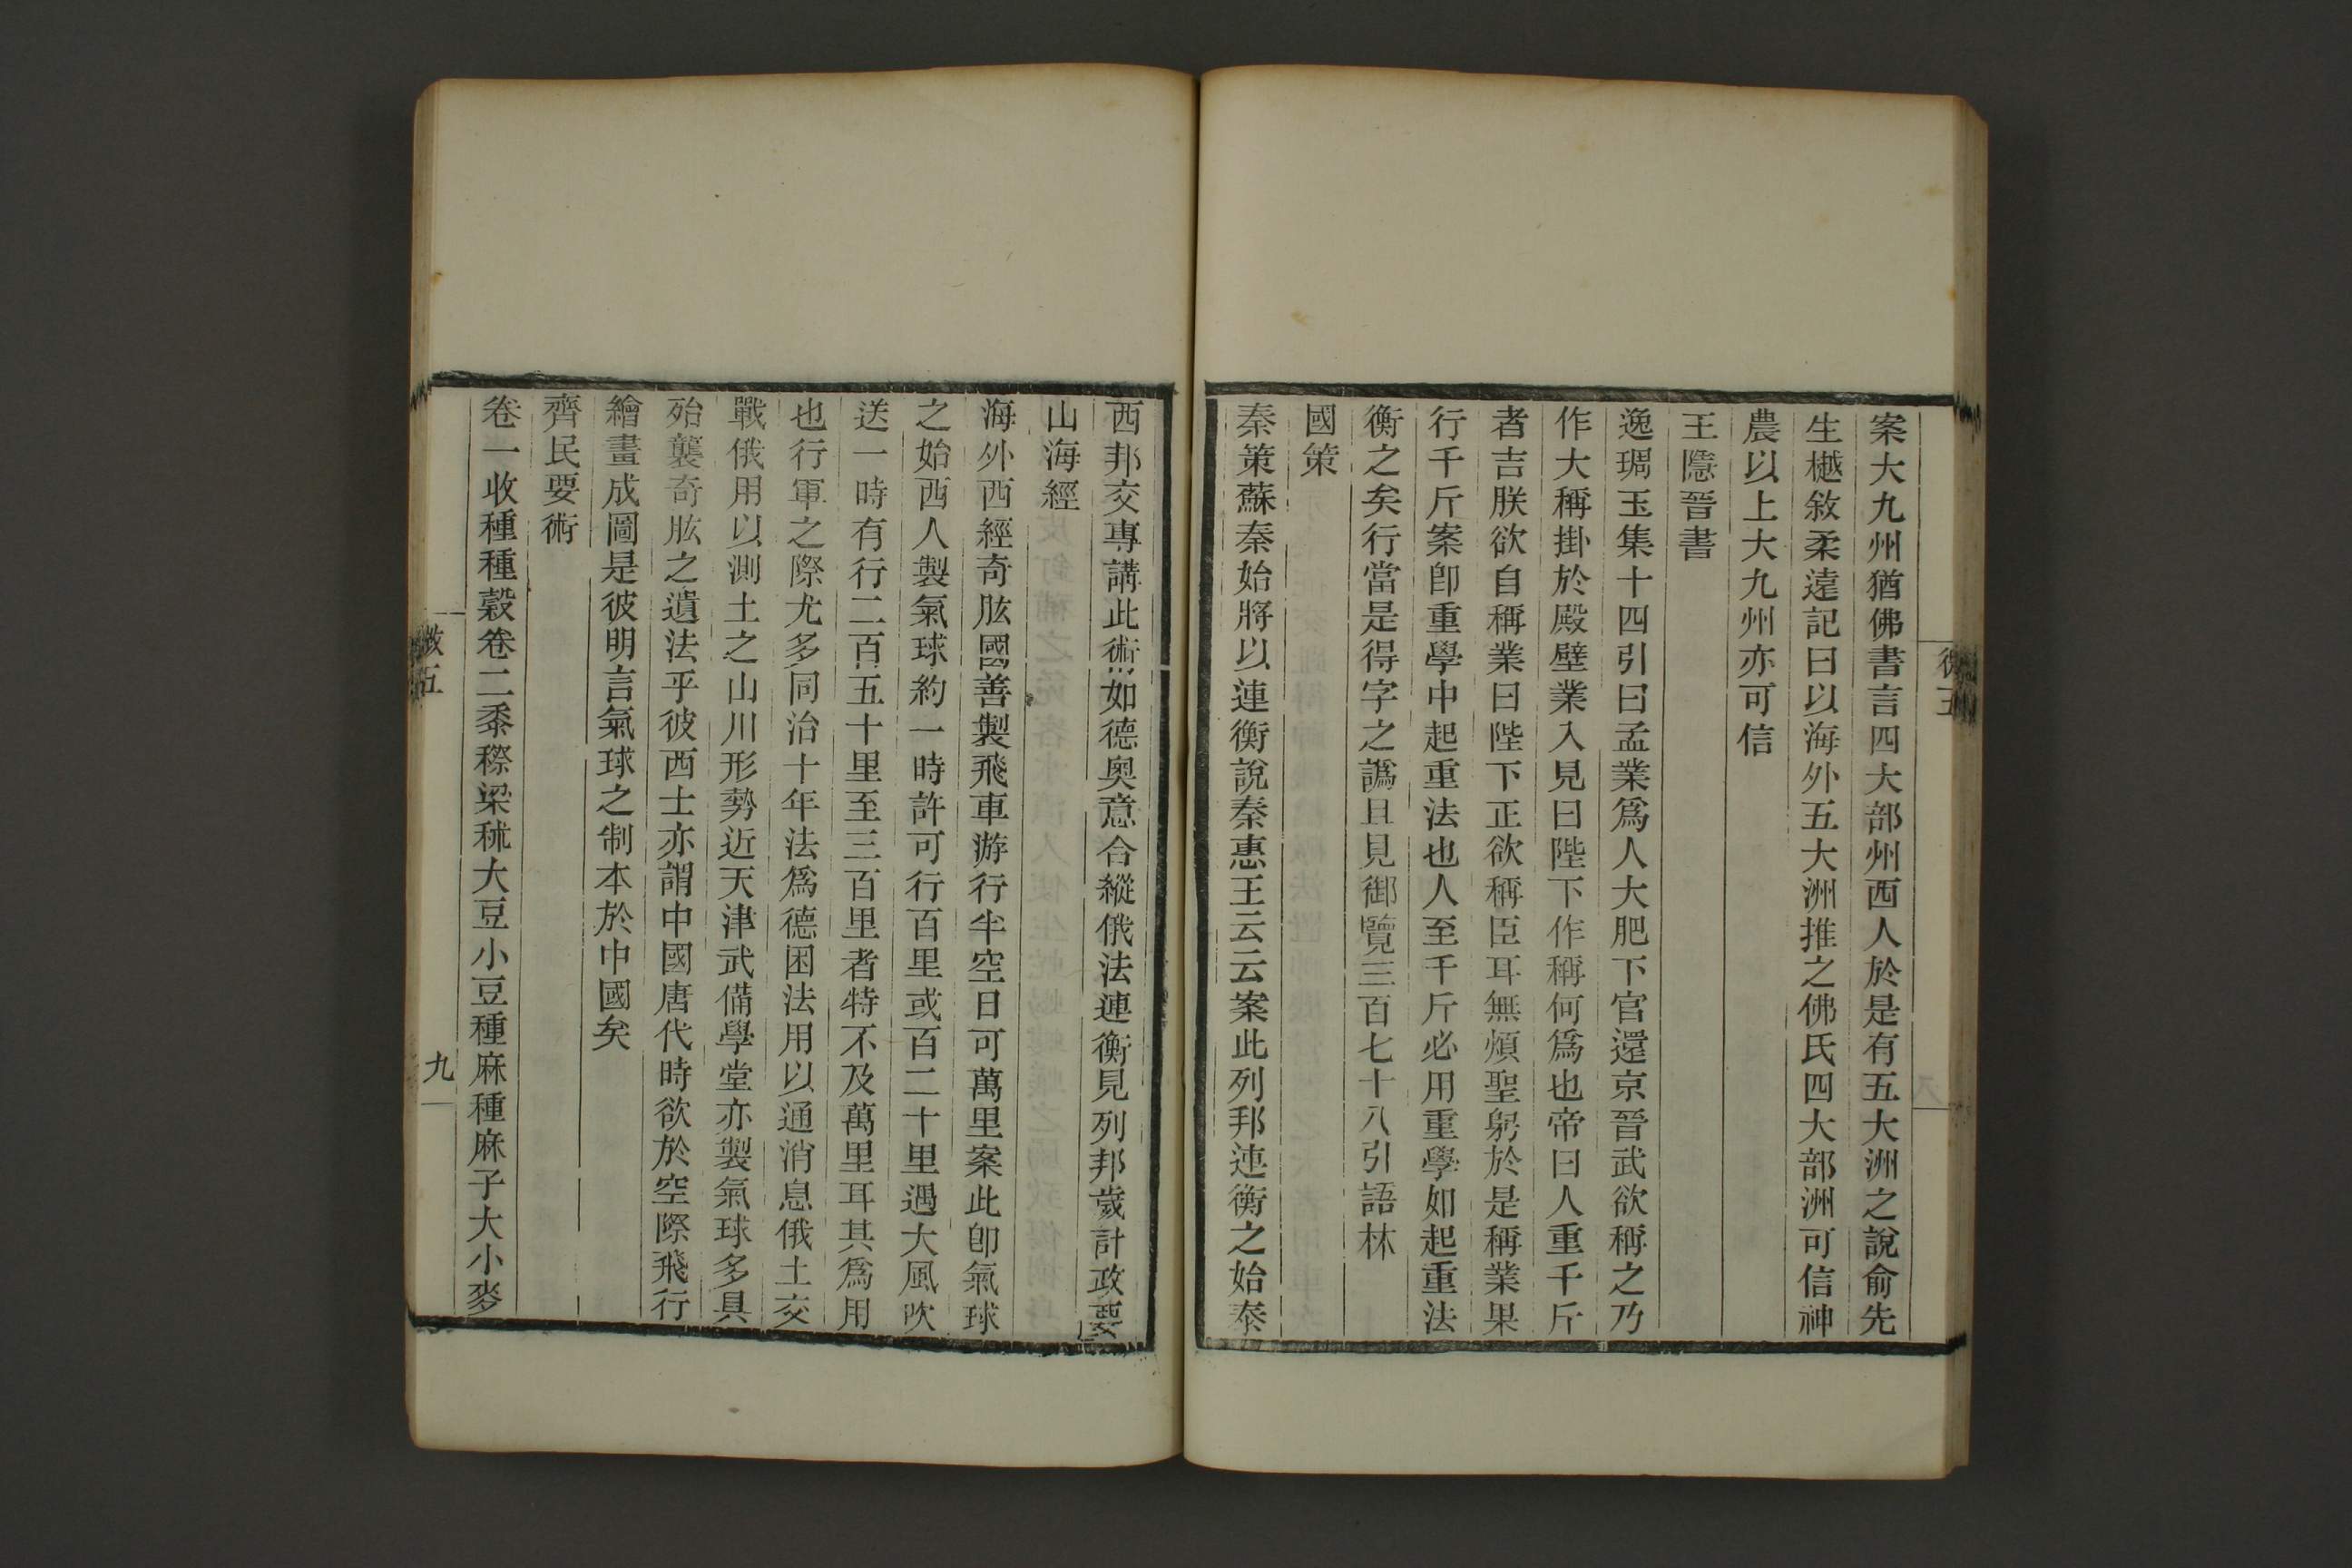 案大九州猶佛書言四大部州西人於是有五大洲之說俞先
生樾敘柔遠記曰以海外五大洲推之佛氏四大部洲可信神
農以上大九州亦可信
王隱晉書
逸琱玉集十四引曰孟業爲人大肥下官還京晉武欲稱之乃
作大稱掛於殿壁業入見曰陛下作稱何爲也帝曰人重千斤
者吉朕欲自稱業曰陛下正欲稱臣耳無煩聖躬於是稱業果
行千斤案卽重學中起重法也人至千斤必用重學如起重法
衡之矣行當是得字之譌且見御覽三百七十八引語林
國策
秦策蘇秦始將以連衡說秦惠王云云案此列邦連衡之始泰
西邦交專講此術如德奧意合縱俄法連衡見列邦歲計政要
山海經
海外西經奇肱國善製飛車游行半空日可萬里案此卽氣球
之始西人製氣球約一時許可行百里或百二十里遇大風吹
送一時有行二百五十里至三百里者特不及萬里耳其爲用
也行軍之際尤多同治十年法爲德困法用以通消息俄土交
戰俄用以測土之山川形勢近天津武備學堂亦製氣球多具
殆襲奇肱之遺法乎彼西士亦謂中國唐代時欲於空際飛行
繪畫成圖是彼明言氣球之制本於中國矣
齊民要術
卷一收種種穀卷二黍穄梁秫大豆小豆種麻種麻子大小麥
九